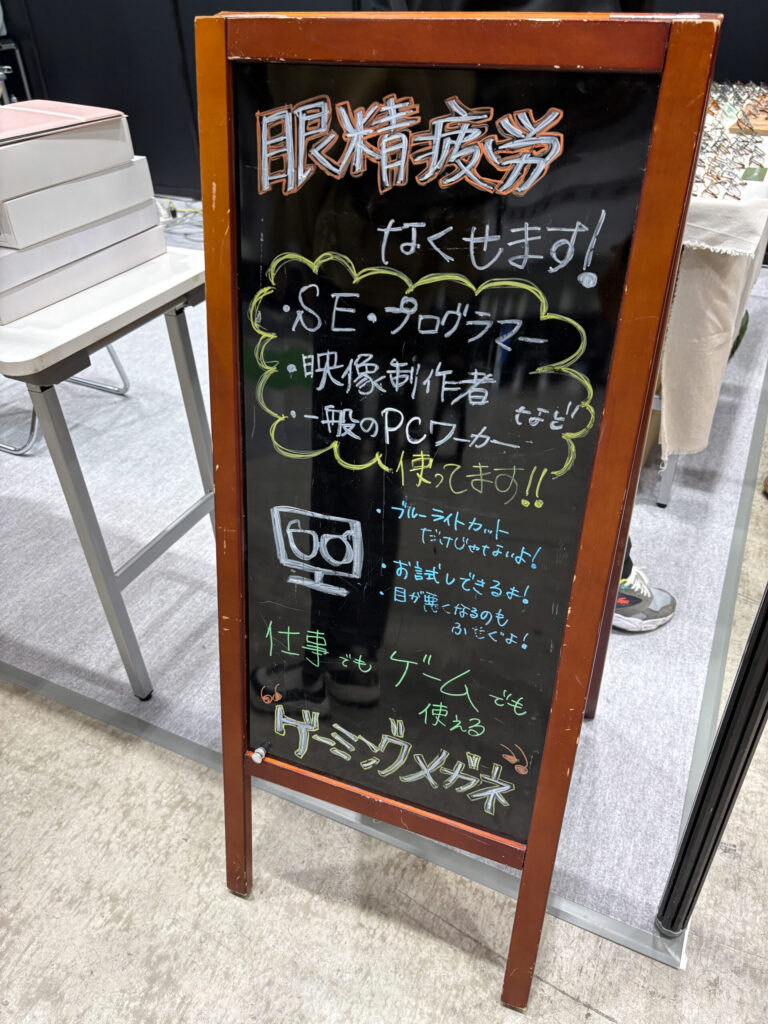 眼精疲労
なくせます!
・SE・プログラマー
・映像制作者
・一般のPCワーカー など
使ってます!!
・ブルーライトカット
だけじゃないよ!
・お試しできるよ!
・目が悪くなるのも
ふせぐよ!
仕事でも ゲームでも
使える
“ゲーミングメガネ”